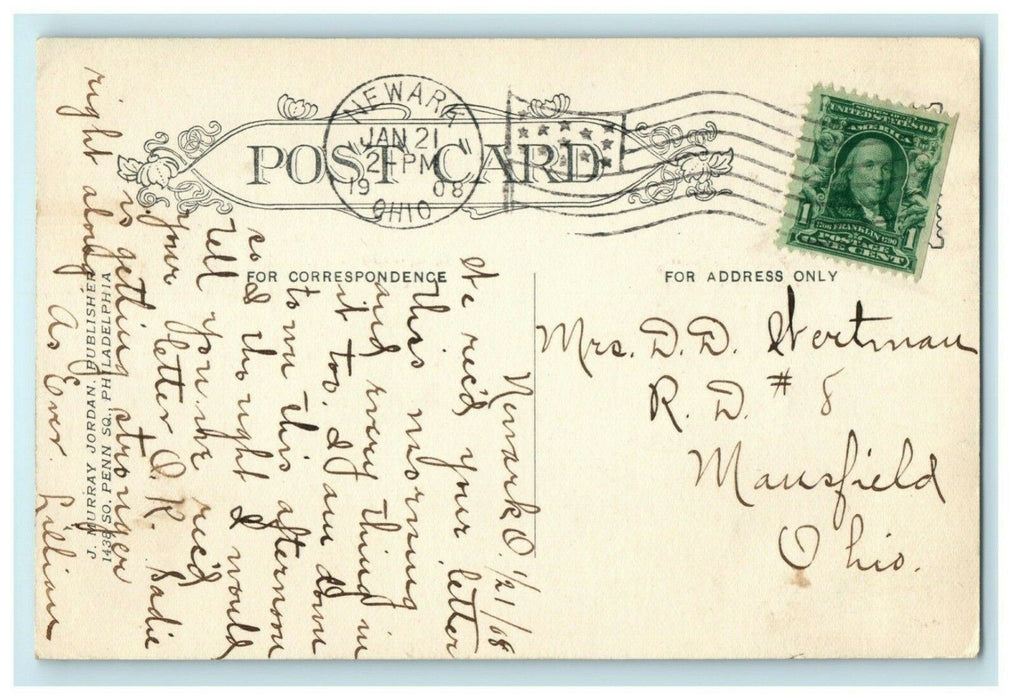 POST CARD
NEWARK
JAN 21
2 PM
1908
OHIO
UNITED STATES OF
AMERICA
1706 FRANKLIN 1790
1 POSTAGE 1
ONE CENT
FOR CORRESPONDENCE
FOR ADDRESS ONLY
Mrs. D. D. Wertman
R. D. # 8
Mansfield
Ohio.
Newark O. 1/21/08
We rec'd your letter
this morning
and every thing in
it too. I am down
town this afternoon
so I thought I would
tell you he rec'd
your letter O.K. Sadie
is getting stronger
right along
As Ever. Lillian
J. MURRAY JORDAN, PUBLISHER
1438 SO. PENN SQ., PHILADELPHIA